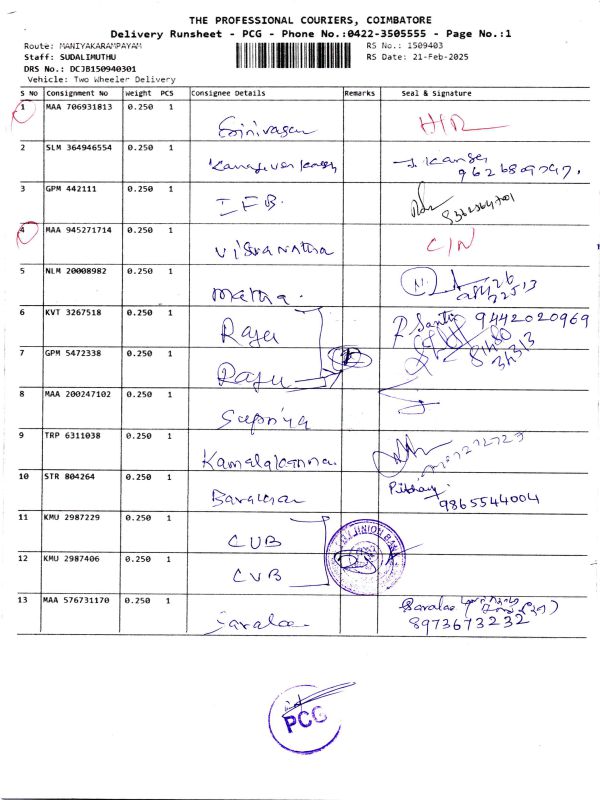 THE PROFESSIONAL COURIERS, COIMBATORE
Delivery Runsheet - PCG - Phone No.:0422-3505555 - Page No.:1
Route: MANIYAKARAMPAYAM RS No.: 1509403
Staff: SUDALIMUTHU RS Date: 21-Feb-2025
DRS No.: DCJB150940301
Vehicle: Two Wheeler Delivery
S No Consignment No Weight PCS Consignee Details Remarks Seal & Signature
1 MAA 706931813 0.250 1 Srinivasan
2 SLM 364946554 0.250 1 J. Kanges
9626809797.
3 GPM 442111 0.250 1 IFB.
4 MAA 945271714 0.250 1 Viswanatha
5 NLM 20008982 0.250 1 N.
6 KVT 3267518 0.250 1 Raju 9442020969
7 GPM 5472338 0.250 1 Raju
8 MAA 200247102 0.250 1 Supriya
9 TRP 6311038 0.250 1 Kamalakanna.
10 STR 804264 0.250 1
9865544004
11 KMU 2987229 0.250 1 CUB
12 KMU 2987406 0.250 1 CVB
UNION BANK
13 MAA 576731170 0.250 1 Saralaa Saralaa
8973673232
PCG